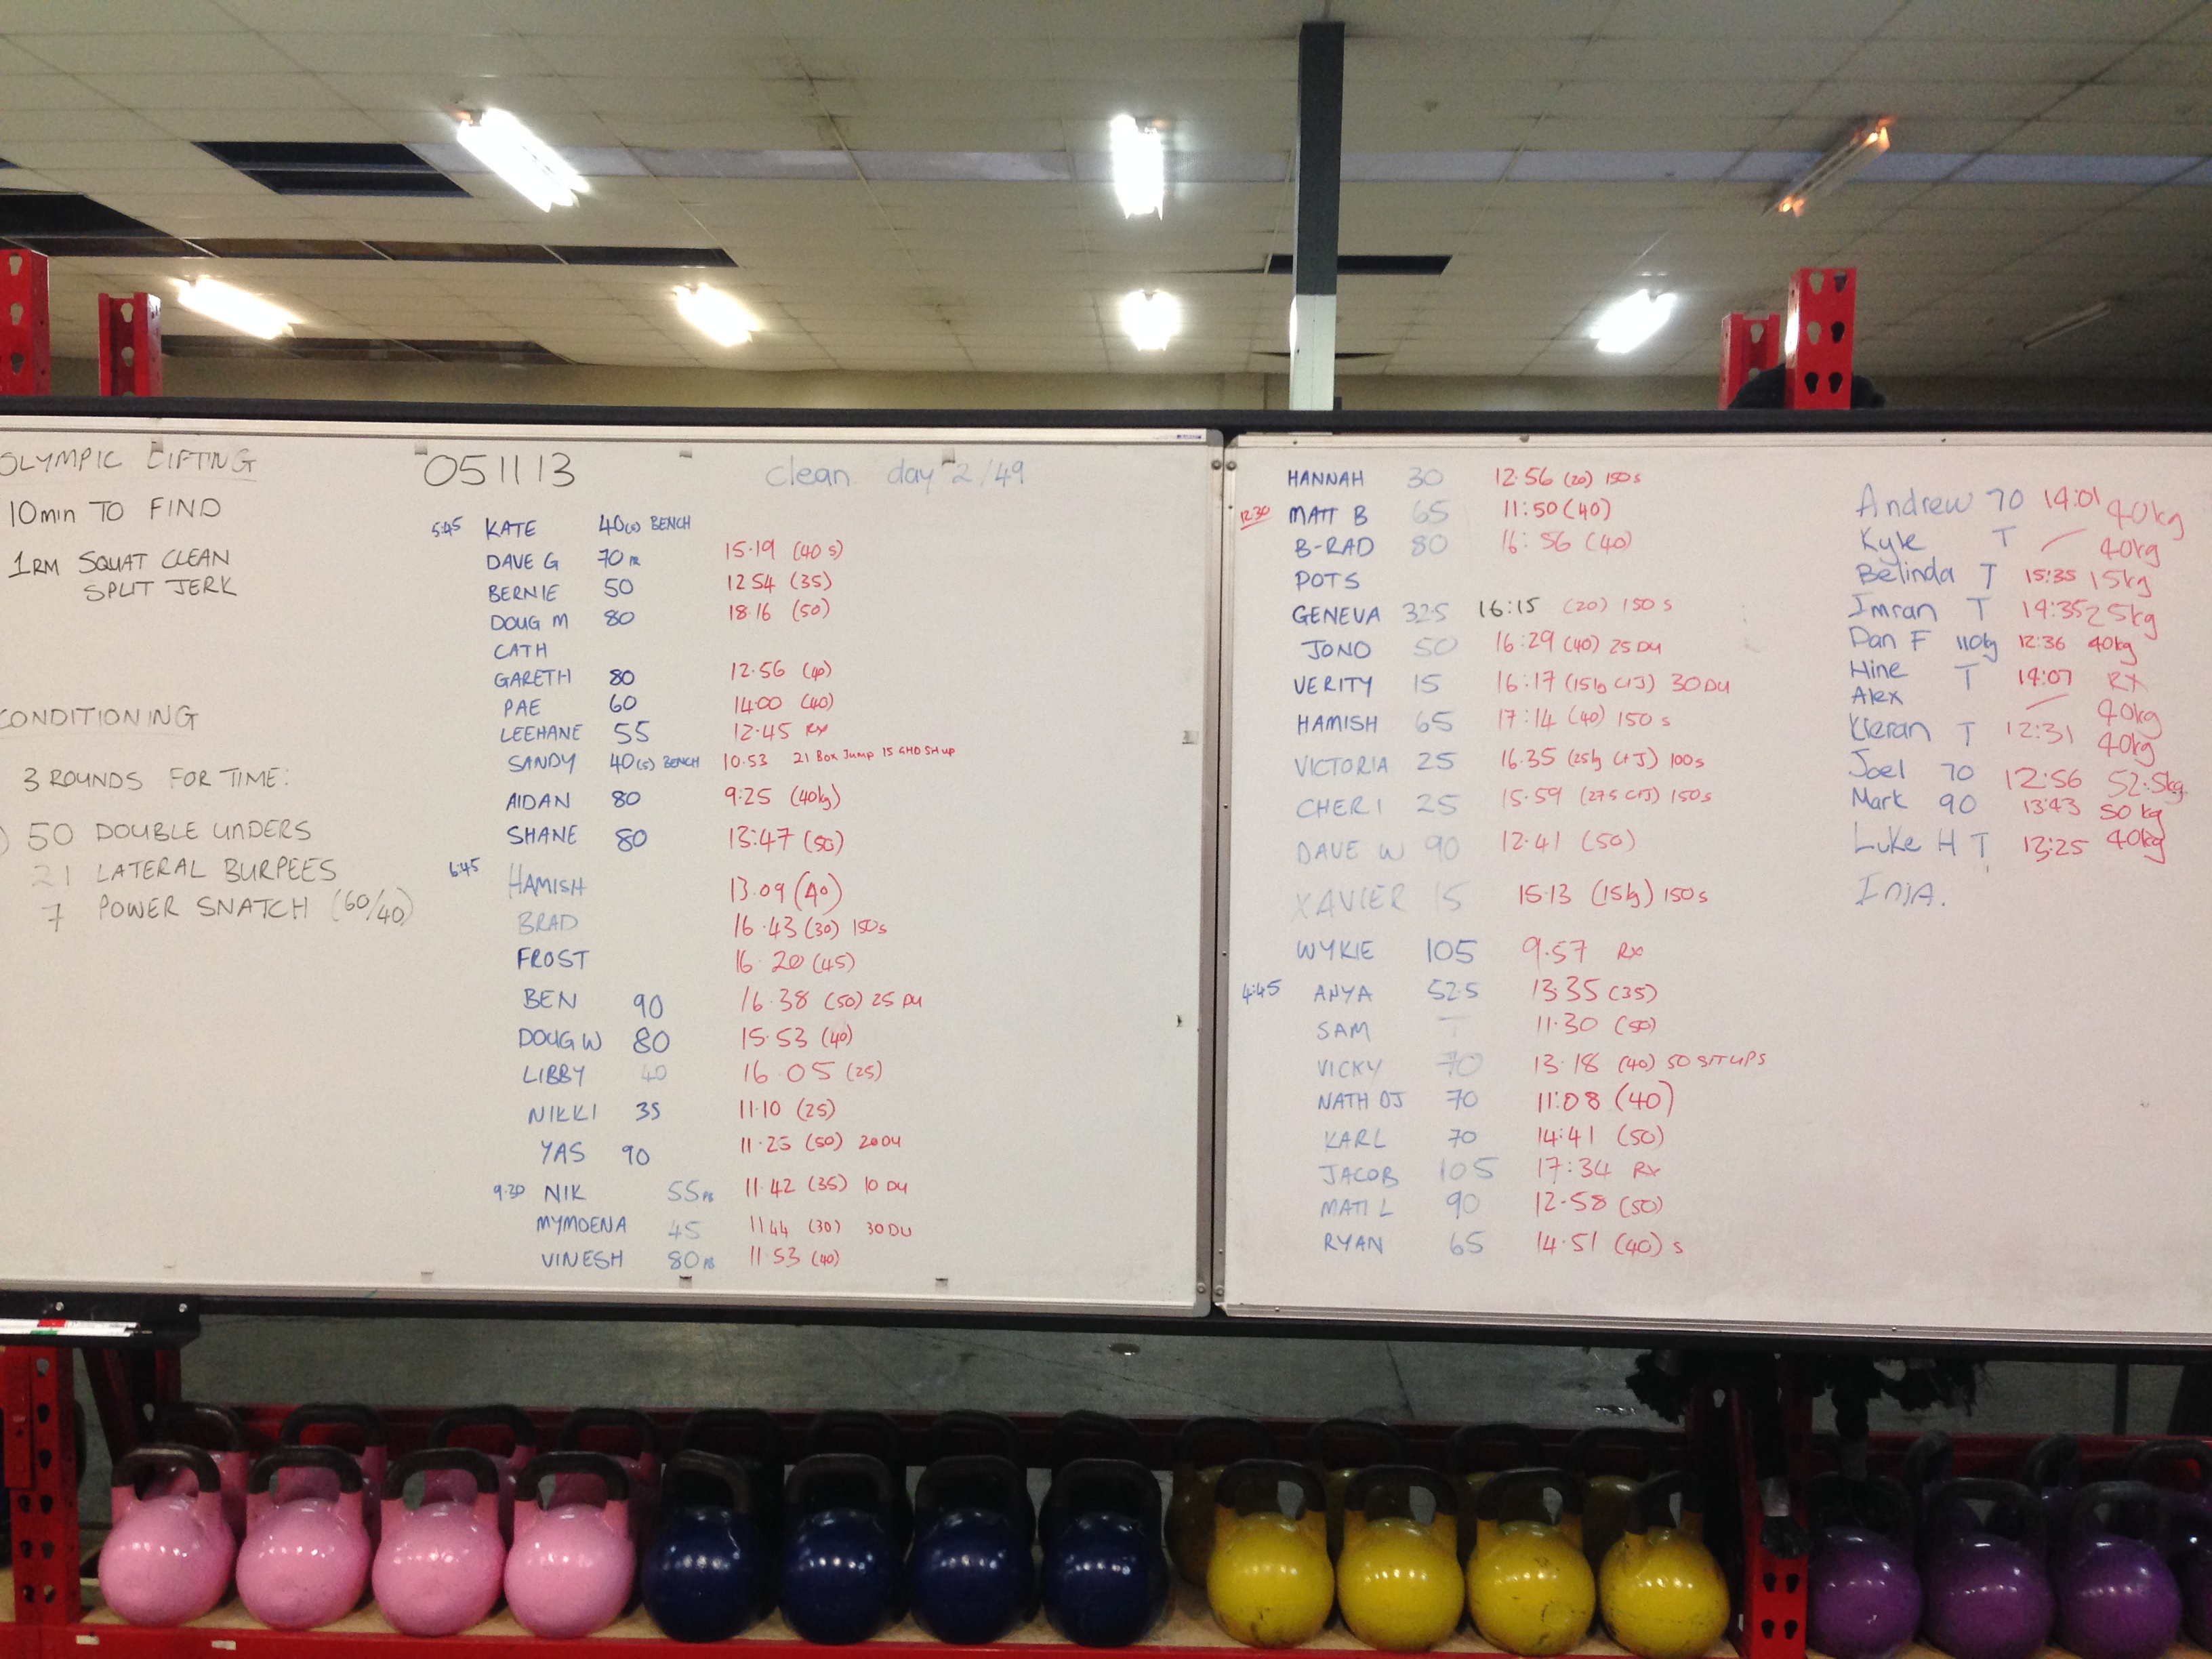 OLYMPIC LIFTING
10min TO FIND
1RM SQUAT CLEAN
SPLIT JERK
CONDITIONING
3 ROUNDS FOR TIME:
50 DOUBLE UNDERS
21 LATERAL BURPEES
7 POWER SNATCH (60/40)
051113
clean day 2/49
5:45 KATE 40(s) BENCH
DAVE G 70 PR 15.19 (40 s)
BERNIE 50 12 54 (35)
DOUG M 80 18.16 (50)
CATH
GARETH 80 12.56 (40)
PAE 60 14.00 (40)
LEEHANE 55 12.45 RX
SANDY 40(s) BENCH 10.53 21 Box Jump 15 GHD SIT UP
AIDAN 80 9:25 (40kg)
SHANE 80 13:47 (50)
6:45 HAMISH 13.09 (40)
BRAD 16.43 (30) 150s
FROST 16.20 (45)
BEN 90 16.38 (50) 25 DU
DOUG W 80 15.53 (40)
LIBBY 40 16.05 (25)
NIKKI 35 11.10 (25)
YAS 90 11.25 (50) 20 DU
9.30 NIK 55 PB 11.42 (35) 10 DU
MYMOENA 45 11 44 (30) 30 DU
VINESH 80 PB 11.53 (40)
HANNAH 30 12.56 (20) 150s
12:30 MATT B 65 11:50 (40)
B-RAD 80 16:56 (40)
POTS
GENEVA 32.5 16:15 (20) 150 s
JONO 50 16:29 (40) 25 DU
VERITY 15 16:17 (15kg C+J) 30 DU
HAMISH 65 17:14 (40) 150 s
VICTORIA 25 16.35 (25kg C+J) 100s
CHERI 25 15.59 (27.5 C+J) 150s
DAVE W 90 12.41 (50)
XAVIER 15 15.13 (15kg) 150s
WYKIE 105 9.57 RX
4:45 ANYA 52.5 13.35 (35)
SAM T 11.30 (50)
VICKY 70 13.18 (40) 50 SIT UPS
NATH OJ 70 11:08 (40)
KARL 70 14:41 (50)
JACOB 105 17:34 RX
MATT L 90 12.58 (50)
RYAN 65 14.51 (40) s
Andrew 70 14:01 40kg
Kyle T 40kg
Belinda T 15:35 15kg
Imran T 19:35 25kg
Dan F 110kg 12:36 40kg
Hine T 14:07 RX
Alex 40kg
Kieran T 12:31 40kg
Joel 70 12:56 52.5kg
Mark 90 13:43 50 kg
Luke H T 13:25 40kg